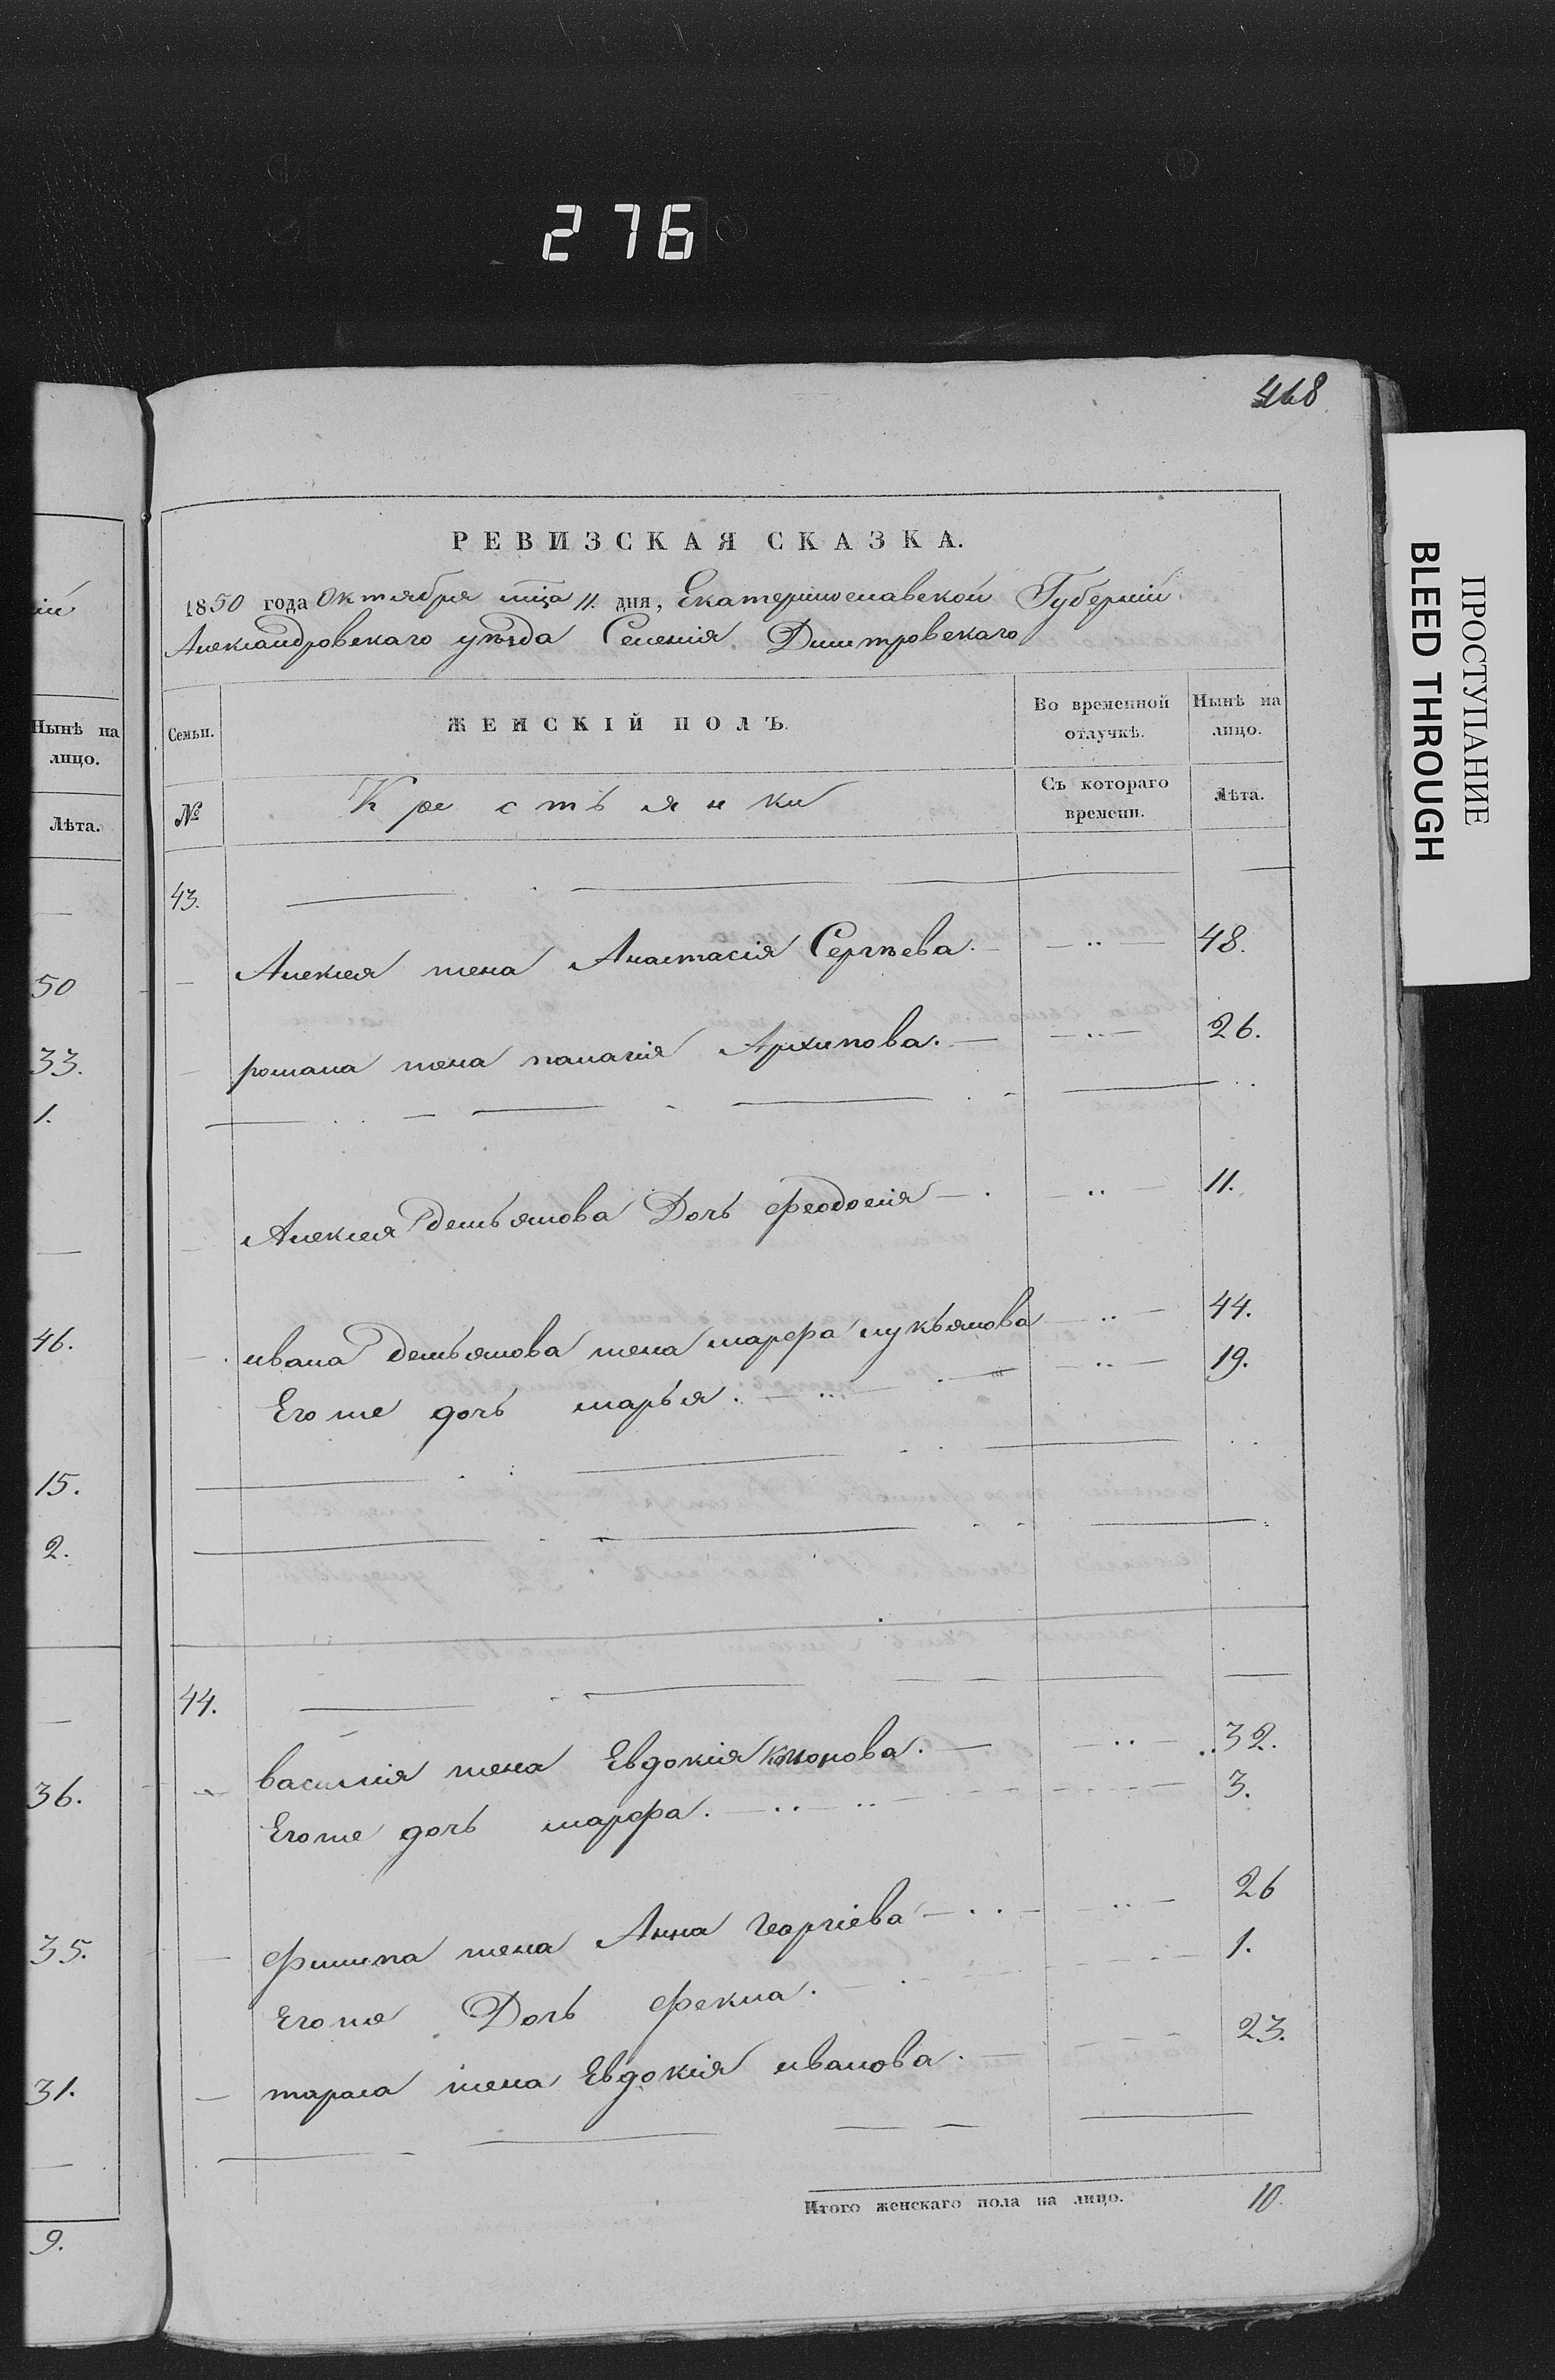 276
468
РЕВИЗСКАЯ СКАЗКА.
1850 года Октября мца 11. дня, Екатеринославской Губерніи
Александровскаго уѣзда Селенія Дмитровскаго
Семьи.
ЖЕНСКІЙ ПОЛЪ.
Во временной отлучкѣ.
Нынѣ на лицо.
№
Крестьянки
Съ котораго времени.
Лѣта.
43.
Алексея жена Анастасія Сергѣева. 48.
романа жена палагія Архипова. 26.
Алексея демьянова Дочь феодосія 11.
ивана демьянова жена марфа лукьянова 44.
Его же дочь марья. 19.
44.
василія жена Евдокія кононова. 32.
Его же дочь марфа. 3.
филипа жена Анна георгіева 26
Его же Дочь фекла. 1.
тараса жена Евдокія иванова. 23.
Итого женскаго пола на лицо. 10.
ій
Нынѣ на
лицо.
Лѣта.
50
33.
1.
46.
15.
2.
36.
35.
31.
9.
ПРОСТУПАНИЕ
BLEED THROUGH